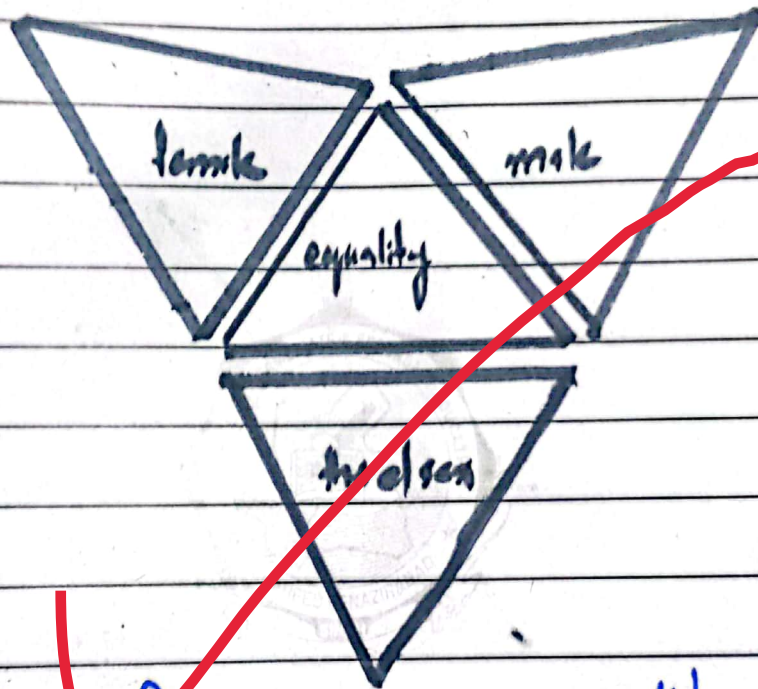 female male
equality
third sex